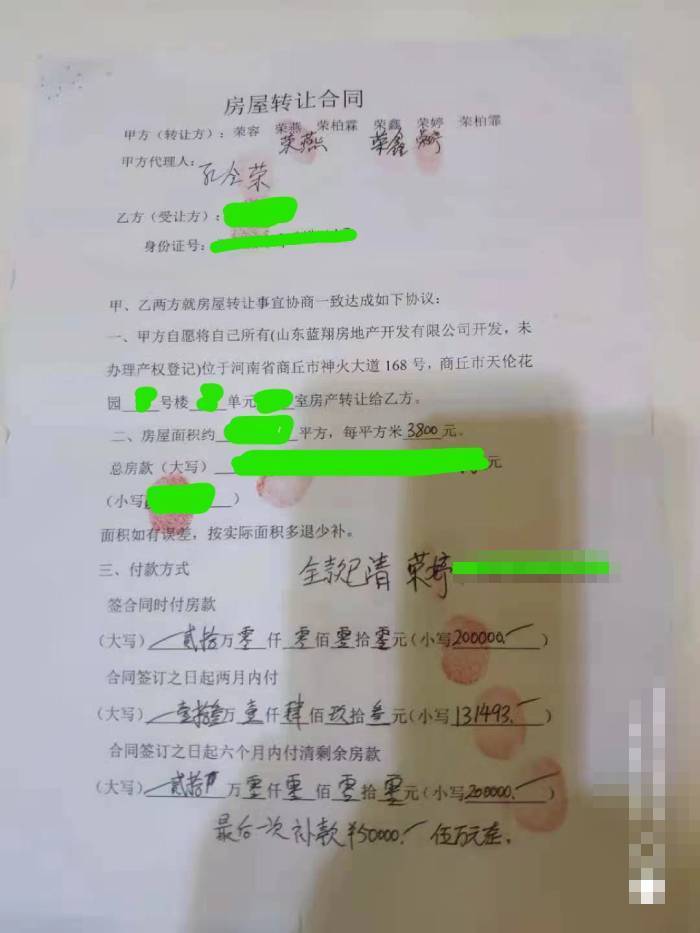 房屋转让合同
甲方（转让方）：荣容 荣燕 荣柏霖 荣鑫 荣婷 荣柏霏
荣燕 荣鑫 荣婷
甲方代理人：孔令荣
乙方（受让方）：
身份证号：
甲、乙两方就房屋转让事宜协商一致达成如下协议：
一、甲方自愿将自己所有(山东蓝翔房地产开发有限公司开发，未
办理产权登记)位于河南省商丘市神火大道168号，商丘市天伦花
园 号楼 单元 室房产转让给乙方。
二、房屋面积约 平方，每平方米3800元。
总房款（大写） 元
（小写 ）
面积如有误差，按实际面积多退少补。
三、付款方式 全款已清 荣婷
签合同时付房款
（大写）贰拾万零仟零佰零拾零元（小写200000.）
合同签订之日起两月内付
（大写）壹拾叁万壹仟肆佰玖拾叁元（小写131493.）
合同签订之日起六个月内付清剩余房款
（大写）贰拾万零仟零佰零拾零元（小写200000.）
最后一次补款¥50000. 伍万元在.